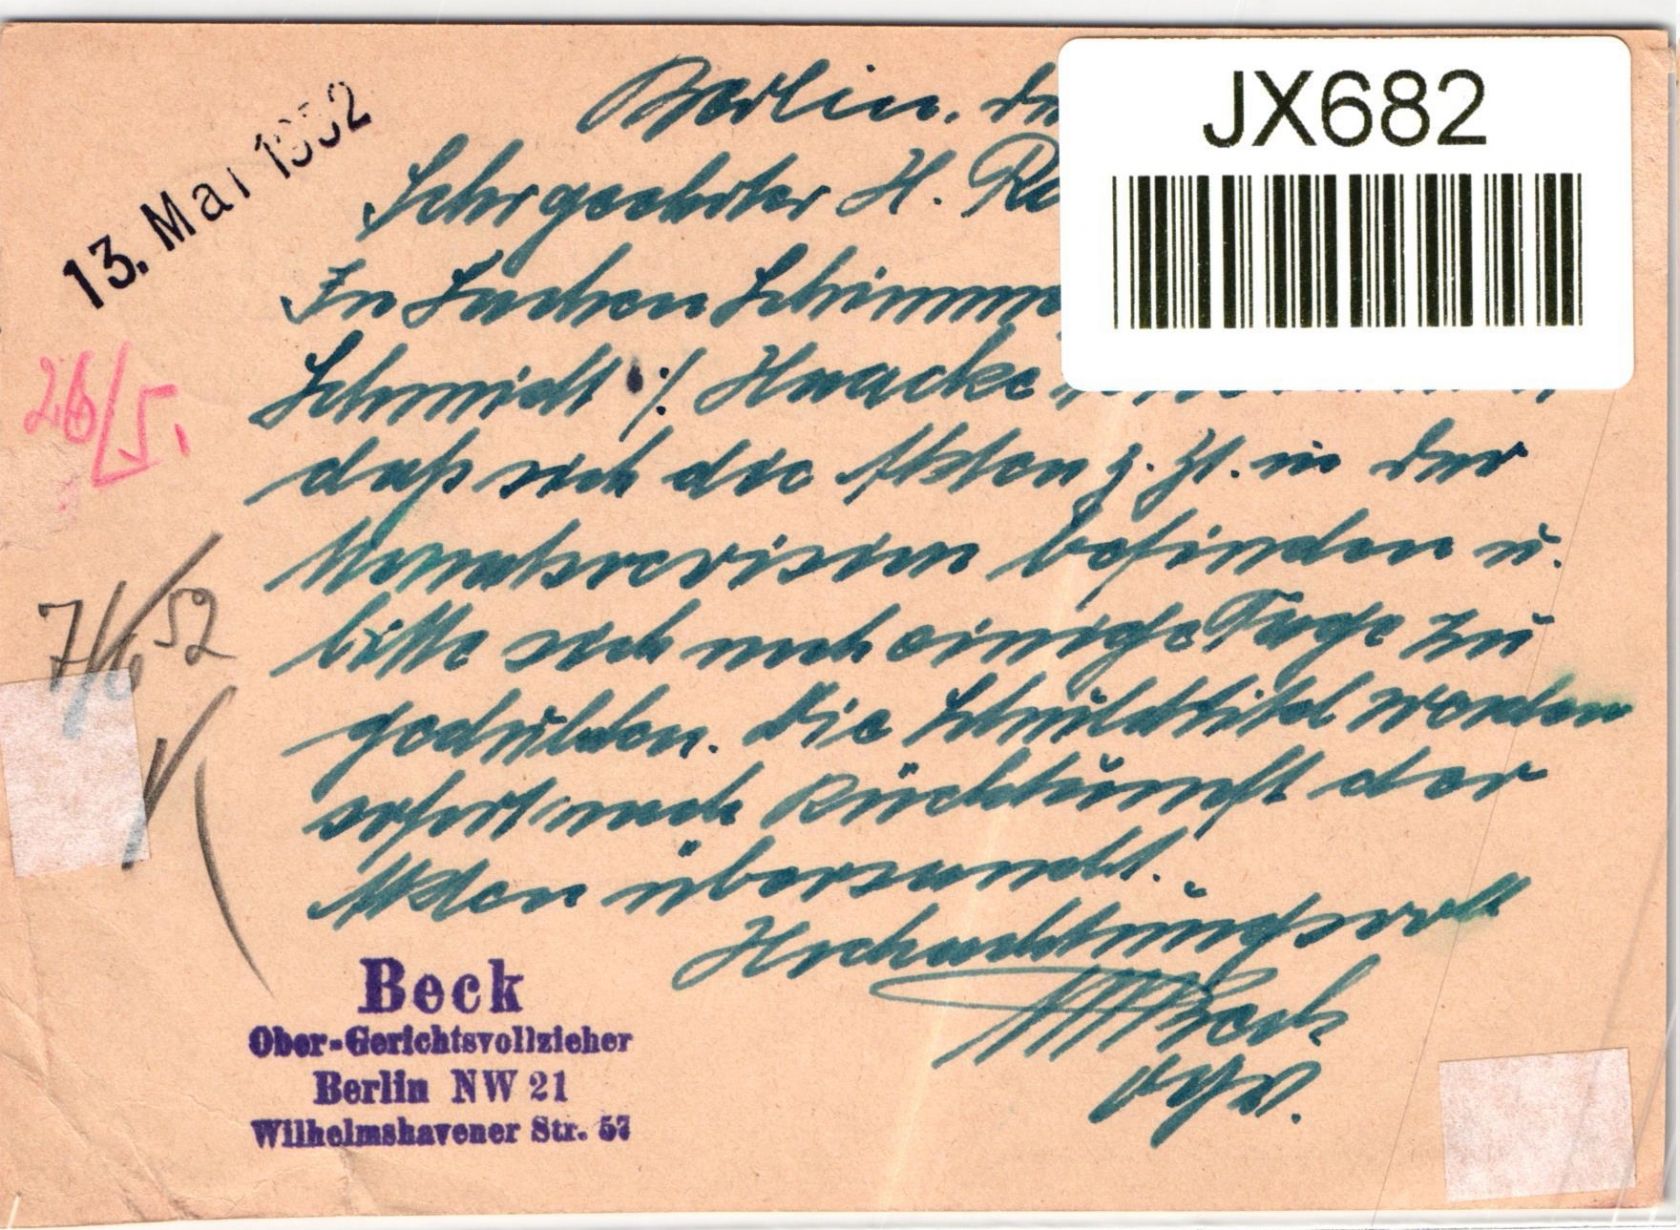 13. Mai 1952
JX682
Berlin, d
Sehr geehrter H. Re
In Sachen Schimm
Schmidt ./. Haacke
26/5.
daß sich die Akten z. Zt. in der
Monatsrevision befinden u.
7/6 52
bitte sich noch einige Tage zu
gedulden. Die Schuldtitel werden
sofort nach Rückkunft der
Akten übersandt.
Hochachtungsvoll
Beck
OGV.
Beck
Ober-Gerichtsvollzieher
Berlin NW 21
Wilhelmshavener Str. 57